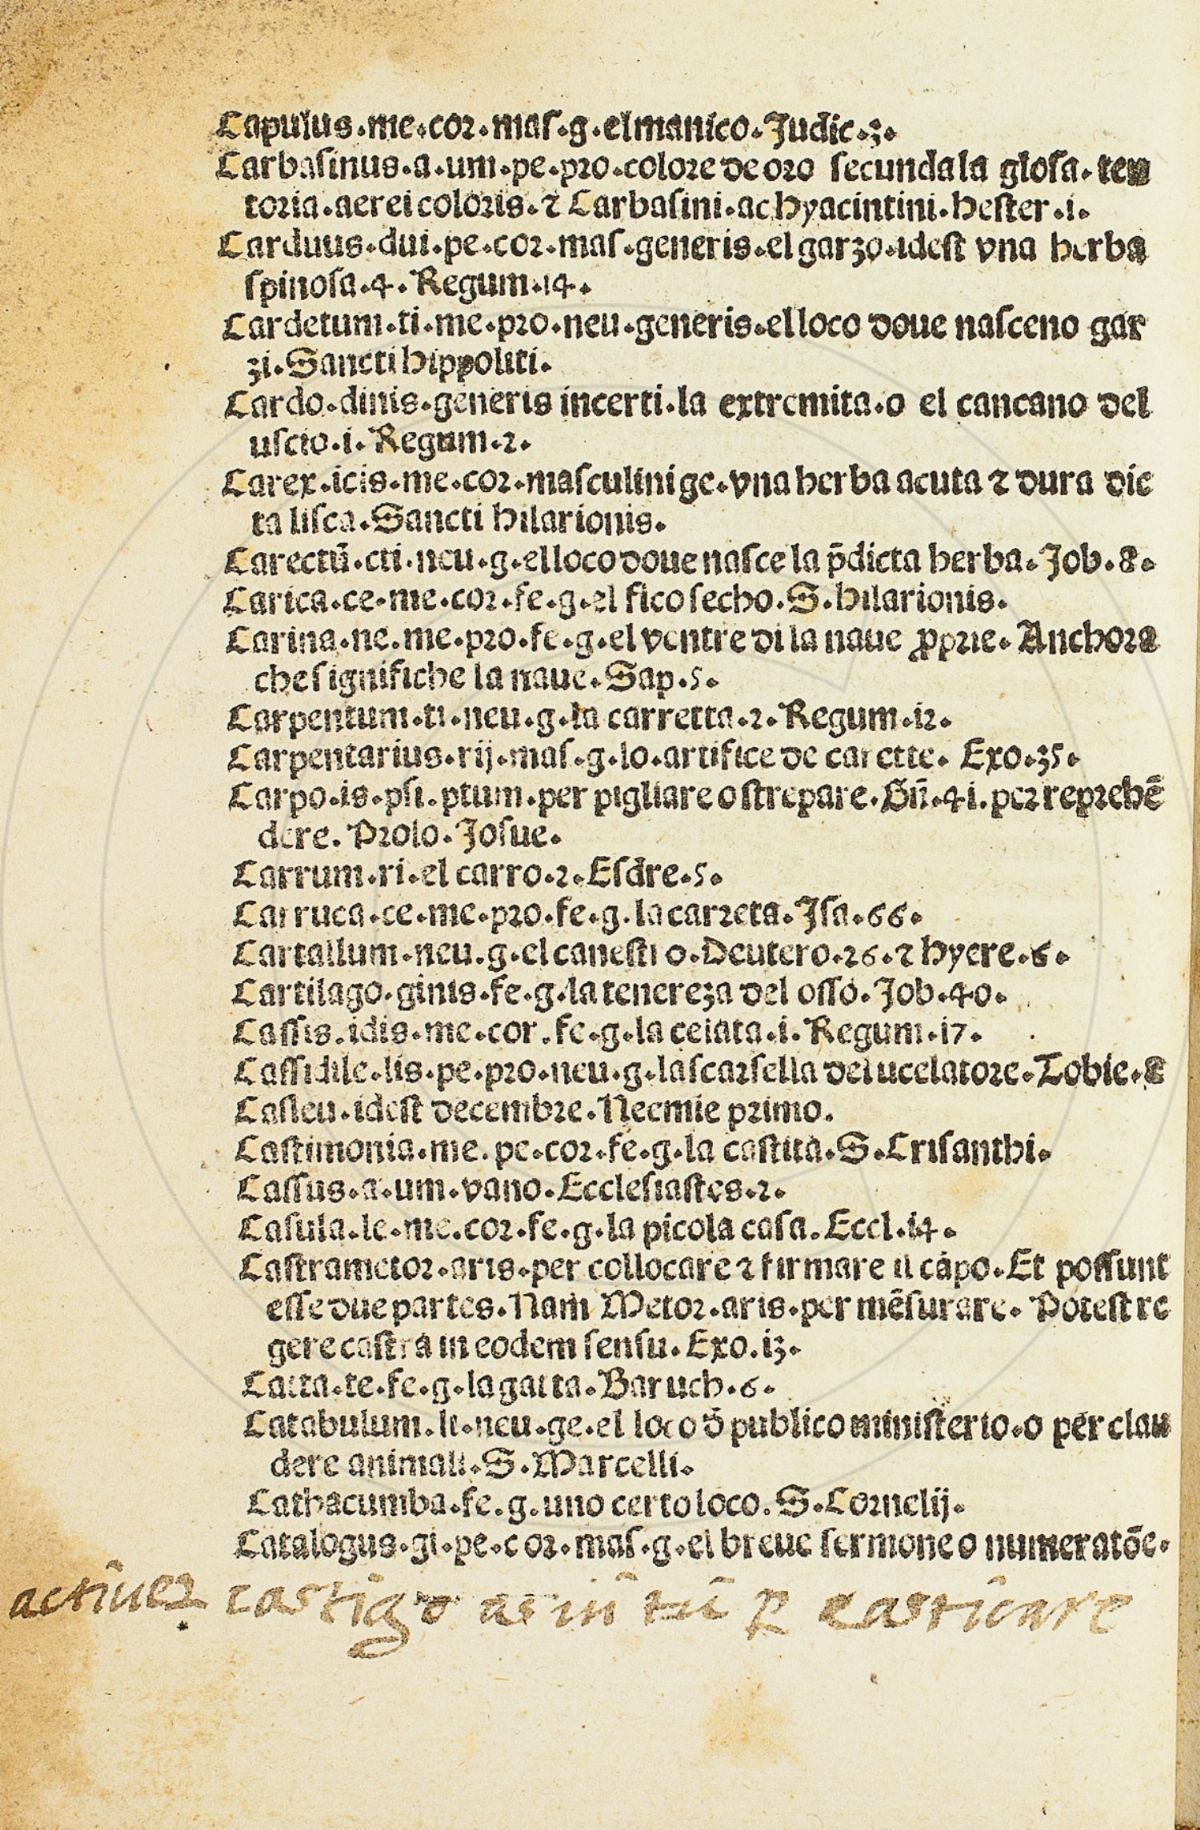 Capulus.me.cor.mas.g.el manico.Judic.3.
Carbasinus.a.um.pe.pro.colore de oro secunda la glosa.ten
toria.aerei coloris.⁊ Carbasini.ac hyacintini.Hester.i.
Carduus.dui.pe.cor.mas.generis.el garzo.idest vna herba
spinosa.4.Regum.14.
Cardetum.ti.me.pro.neu.generis.el loco doue nasceno gar
zi.Sancti hippoliti.
Cardo.dinis.generis incerti.la extremita.o el cancano del
uscio.i.Regum.2.
Carex.icis.me.cor.masculini ge.vna herba acuta ⁊ dura dic
ta lisca.Sancti hilarionis.
Carectū.cti.neu.g.el loco doue nasce la p̄dicta herba.Job.8.
Carica.ce.me.cor.fe.g.el fico secho.S.hilarionis.
Carina.ne.me.pro.fe.g.el ventre di la naue ꝓprie.Anchora
che significhe la naue.Sap.5.
Carpentum.ti.neu.g.la carretta.2.Regum.12.
Carpentarius.rij.mas.g.lo.artifice de carette. Exo.35.
Carpo.is.psi.ptum.per pigliare o strepare.Gñ.41.per reprehē
dere. Prolo.Josue.
Carrum.ri.el carro.2.Esdre.5.
Carruca.ce.me.pro.fe.g.la carreta.Isa.66.
Cartallum.neu.g.el canestro.Deutero.26.⁊ Hyere.6.
Cartilago.ginis.fe.g.la tenereza del osso.Job.40.
Cassis.idis.me.cor.fe.g.la celata.i.Regum.17.
Cassidile.lis.pe.pro.neu.g.la scarsella del ucelatore.Tobie.8
Casleu.idest decembre.Neemie primo.
Castimonia.me.pe.cor.fe.g.la castita.S.Crisanthi.
Cassus.a.um.vano.Ecclesiastes.2.
Casula.le.me.cor.fe.g.la picola casa.Eccl.14.
Castrametor.aris.per collocare ⁊ firmare il cāpo.Et possunt
esse due partes.Nam Metor.aris.per mēsurare. Potest re
gere castra in eodem sensu.Exo.13.
Catta.te.fe.g.la gatta.Baruch.6.
Catabulum.li.neu.ge.el loco d̄ publico ministerio.o per clau
dere animali.S.Marcelli.
Cathacumba.fe.g.uno certo loco.S.Cornelij.
Catalogus.gi.pe.cor.mas.g.el breue sermone o numeratōe.
castigo as